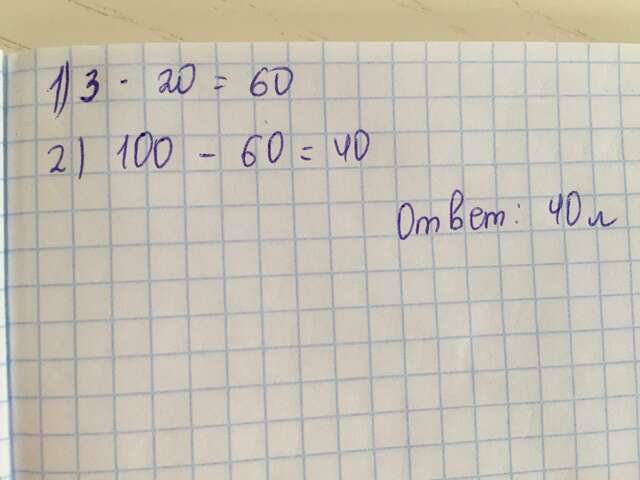 1) 3 · 20 = 60
2) 100 - 60 = 40
Ответ: 40 л